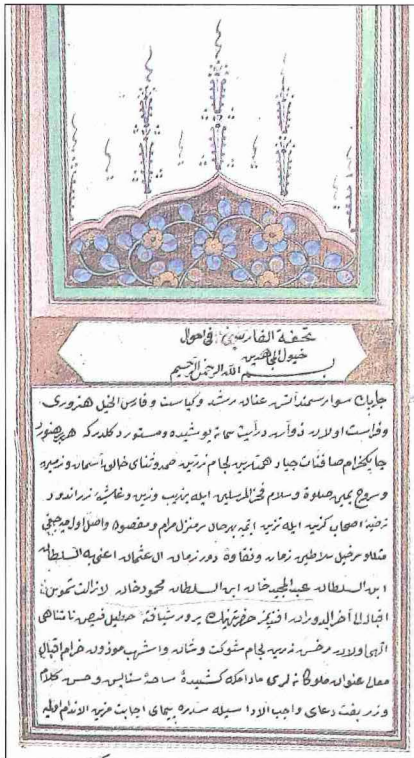 تحفة الفارسين في احوال
خيول المجاهدين
بسم الله الرحمن الرحيم
چابك سوار سمند آتش عنان رشد وكياست وفارس الخيل هنرورى
وفراست اولان ذواتٍ درايت سماته پوشيده ومستور دكلدركه هر هنرور
چابكخرام صافنات جياد همتلرين لجام زرين حمد وثناى خالق آسمان وزمين
وسروج يمين صلوة وسلام فخر المرسلين ايله تزيين وزين وغاشيهٔ زراندود
ترضيهٔ اصحاب كزين ايله تزيين ايتمه بهرحال سرمنزل مرام ومقصوده واصل اوله ميه جغى
سلاطين زمان ونقاوهٔ دور زمان آل عثمان اعنى به السلطان
ابن السلطان عبد المجيد خان ابن السلطان محمود خان لا زالت شموس
اقباله الى آخر الدوران افندمز حضرتلرينك فيض نامتناهى
آلهى اولان رخش زرين لجام شوكت وشان واشهب موزون خرام اقبال
معلى عنوان ملوكانه لرى مادامكه كشيدهٔ ساحهٔ ستايش وحسن كلام
وزربفت دعاى واجب الادا سيله سدره پيماى اجابت مزين الاندام اوليه